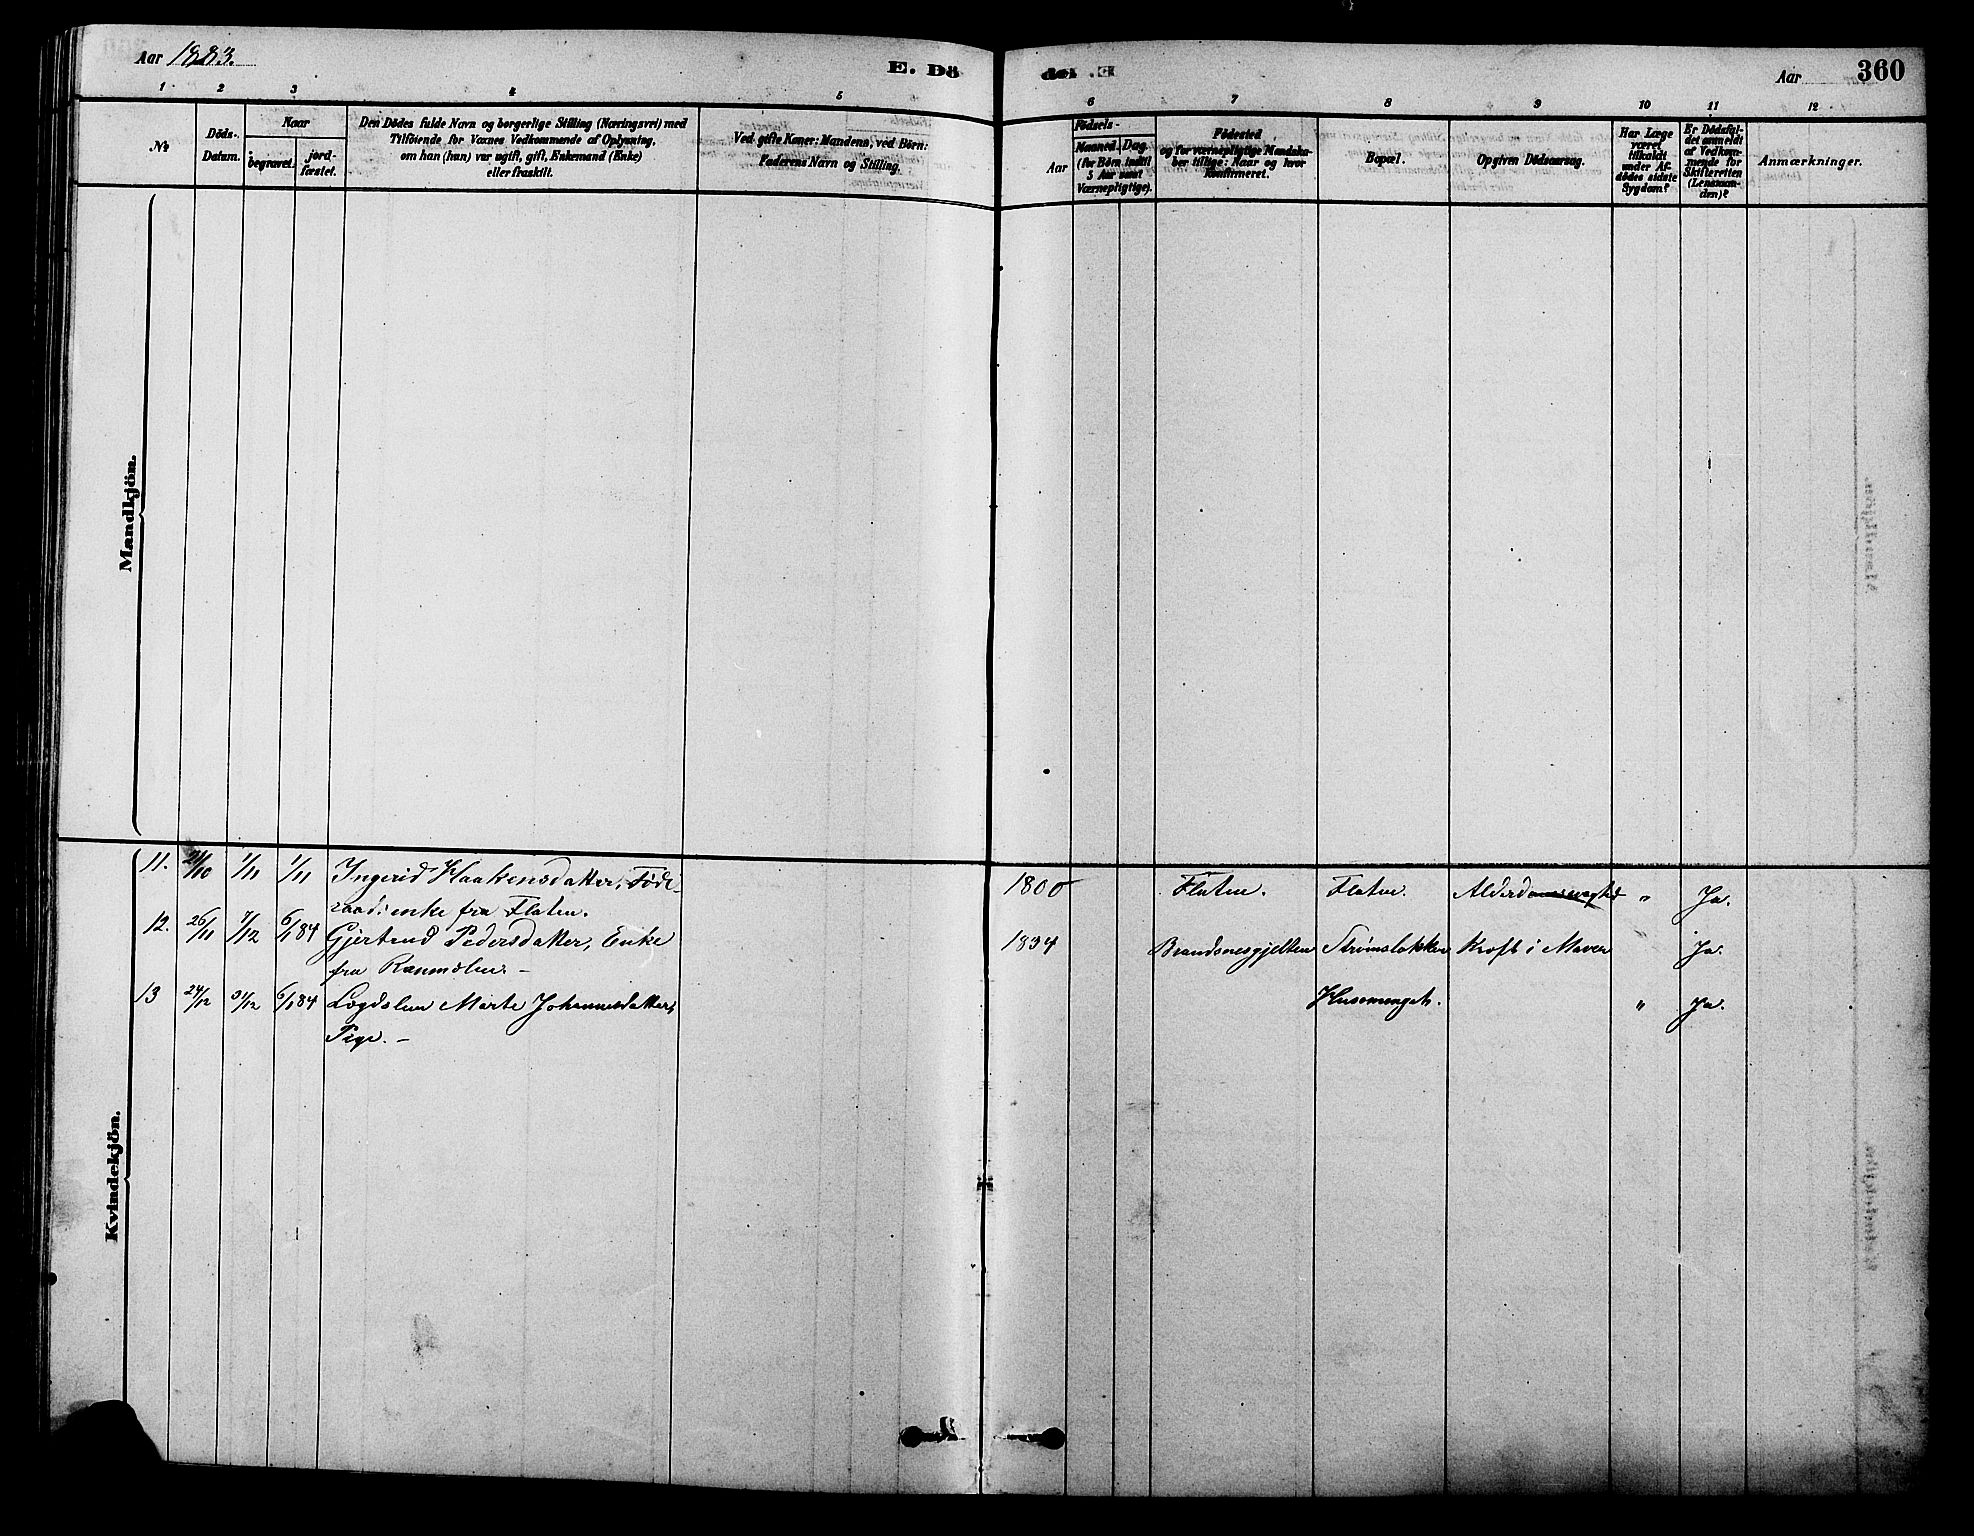 Aar 1883.
E. Dö
Aar
360
1 2 3 4 5
6 7 8 9 10 11 12
№
Döds-
Datum.
Naar
begravet.
jord-
fæstet.
Den Dödes fulde Navn og borgerlige Stilling (Næringsvei) med
Tilföiende for Voxnes Vedkommende af Oplysning,
om han (hun) var ugift, gift, Enkemand (Enke)
eller fraskilt.
Ved gifte Koner: Mandens, ved Börn:
Faderens Navn og Stilling.
Födsels-
Aar
Maaned. Dag.
(for Börn indtil
5 Aar samt
Værnepligtige).
Födested
og for værnepligtige Mandska-
ber tillige: Naar og hvor
konfirmeret.
Bopæl.
Opgiven Dödsaarsag.
Har Læge
været
tilkaldt
under Af-
dödes sidste
Sygdom?
Er Dödsfal-
det anmeldt
af Vedkom-
mende for
Skifteretten
(Lensman-
den)?
Anmærkninger.
Mandkjön.
Kvindekjön.
11. 1/11 1/11 Ingerid Haakensdatter, Føde- 1800 Flaten. Flaten. " Ja.
raadsenke fra Flaten.
12. 26/11 7/12 6/1 84 Gjertrud Pedersdatter, Enke 1834 Kræft i Maven " Ja.
fra
13 24/12 31/12 6/1 84 Logdslem Marte Johannesdatter, " Ja.
Pige. –